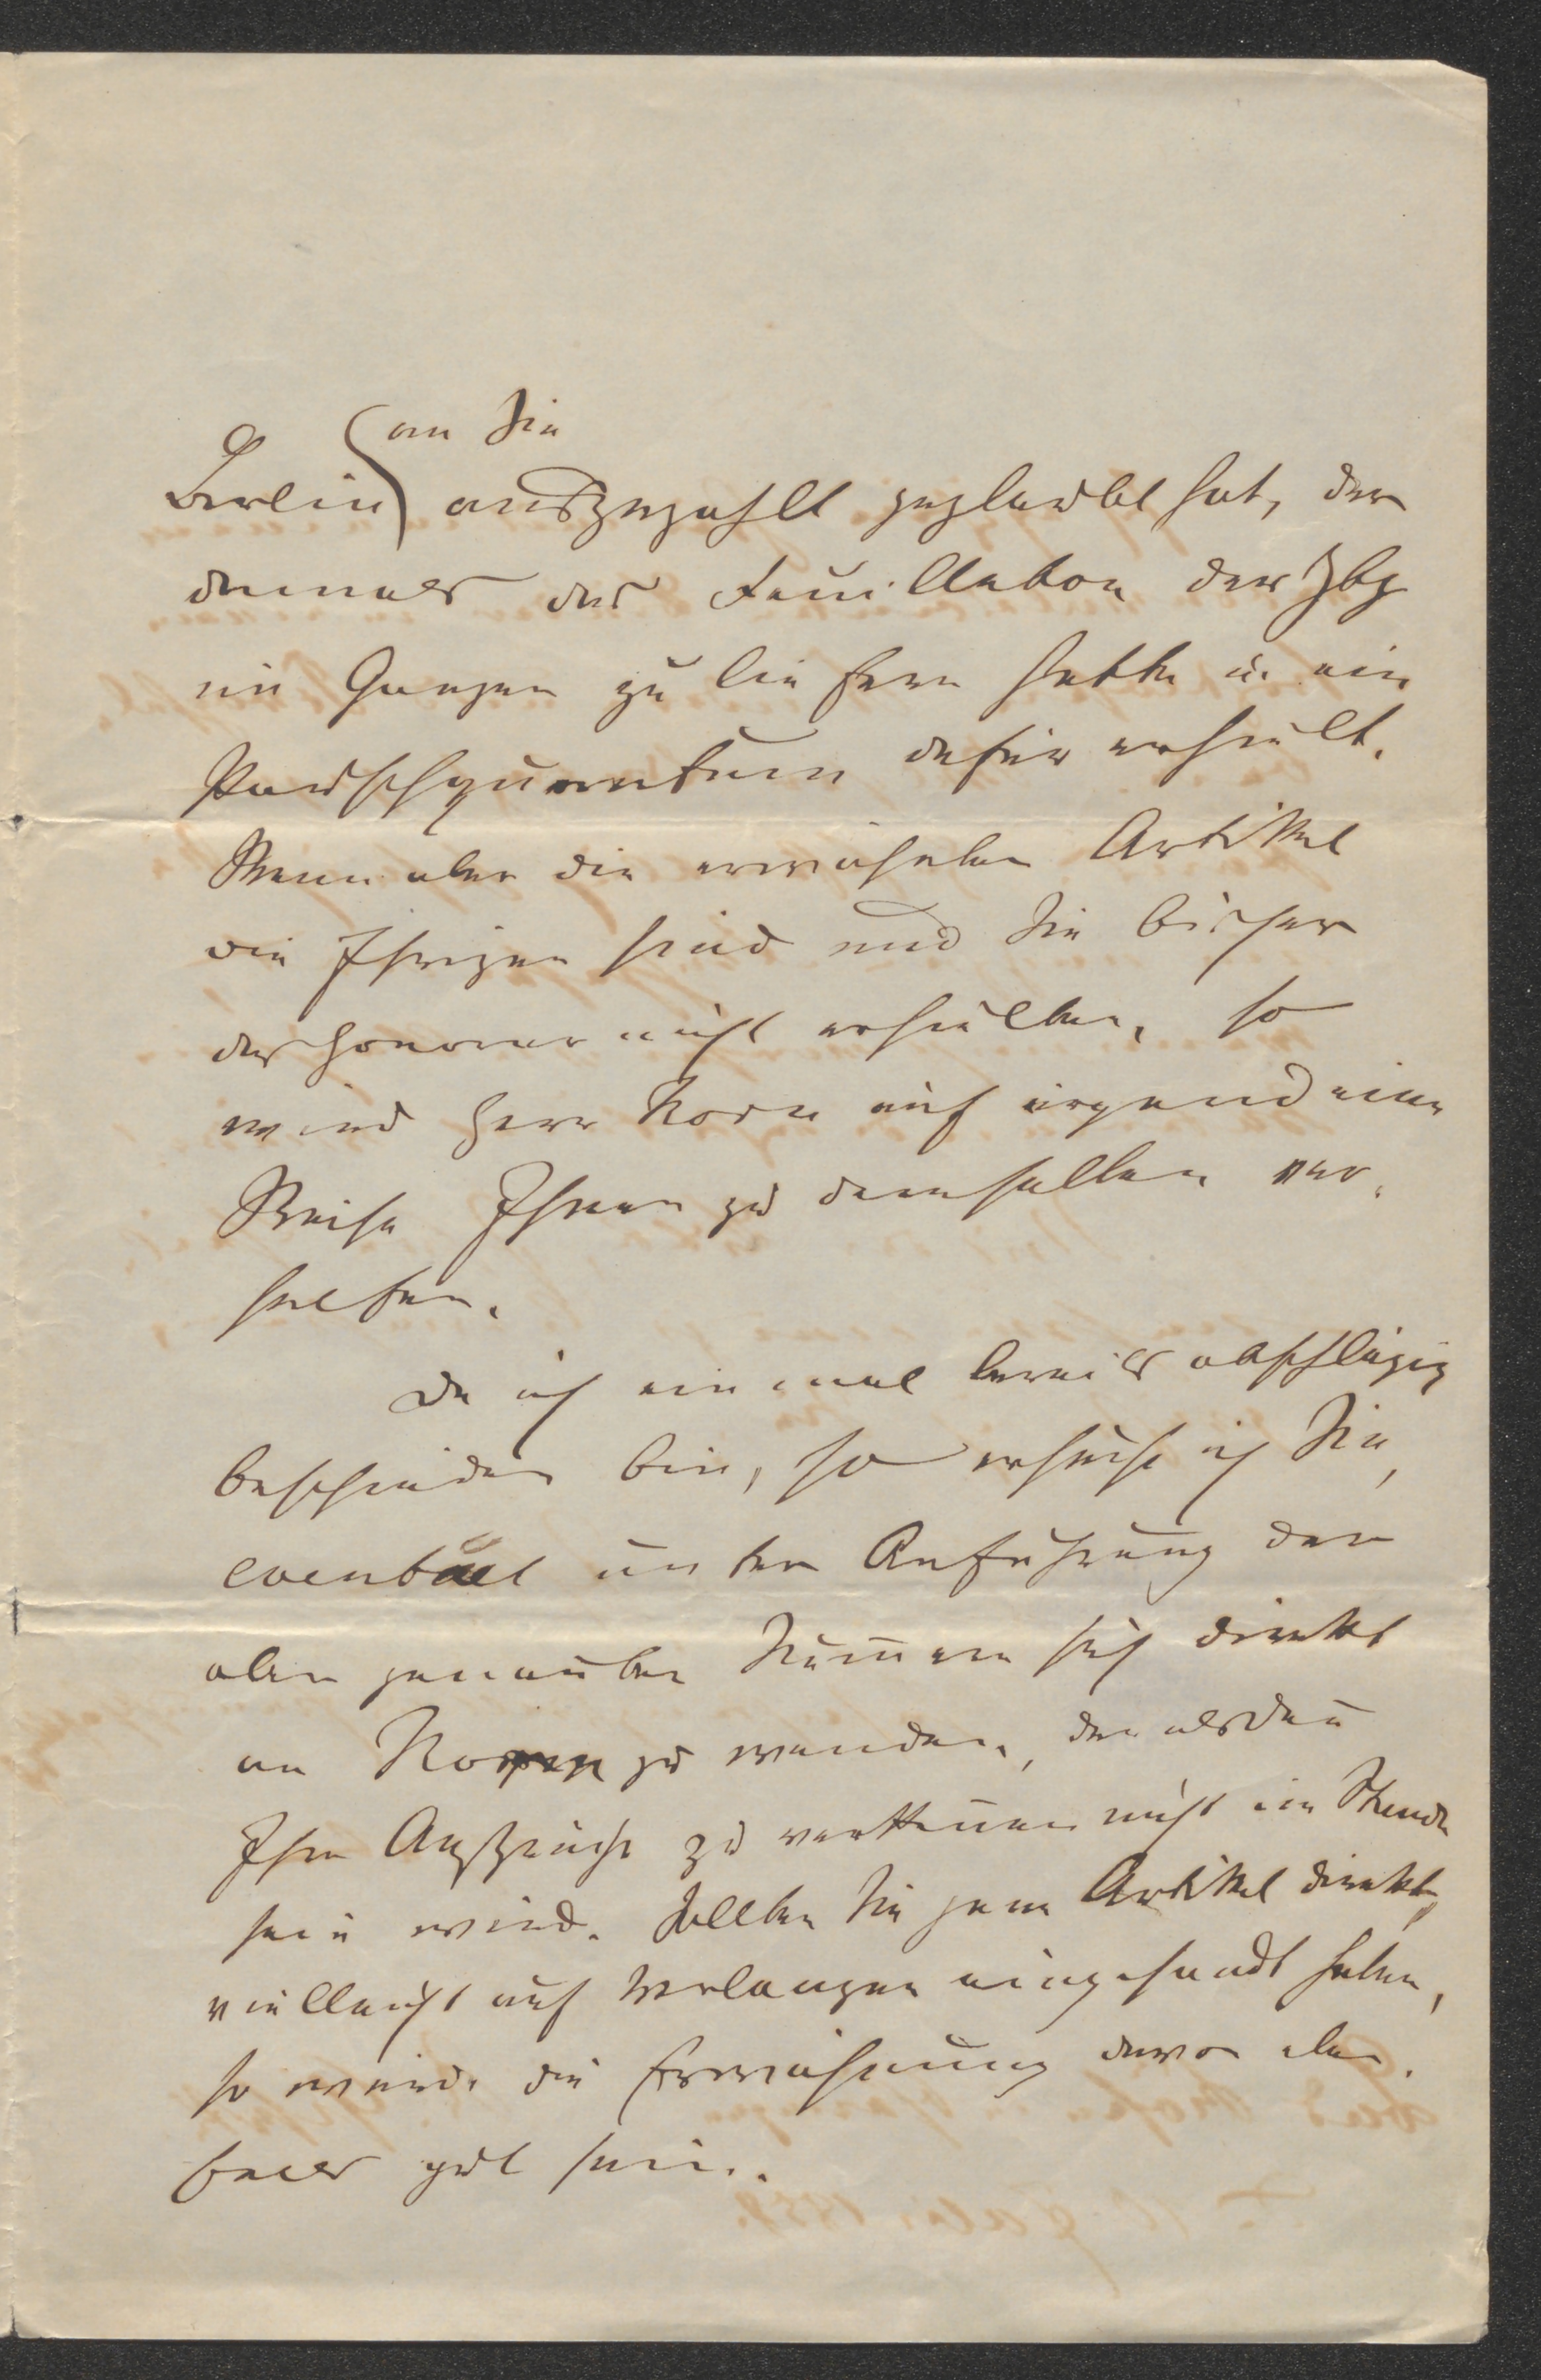 an Sie
Berlin ausgezahlt geglaubt hat, der
damals das Feuilleton der Ztg
im Ganzen zu liefern hatte u. ein
Pauschquantum dafür erhielt.
Wenn aber die erwähnten Artikel
die Ihrigen sind und Sie bisher
das Honorar nicht erhielten, so
wird Herr Korn auf irgend eine
Weise Ihnen zu demselben ver-
helfen.
Da ich einmal bereits abschlägig
beschieden bin, so ersuche ich Sie,
eventuel unter Anführung der
oben genannten Num̅ern sich direkt
an Korn zu wenden, der alsdan̅
Ihre Ansprüche zu verken̅en nicht im Stande
sein wird. Sollten Sie jene Artikel direkt,
vielleicht auf Verlangen eingesandt haben,
so würde die Erwähnung davon eben-
falls gut sein.